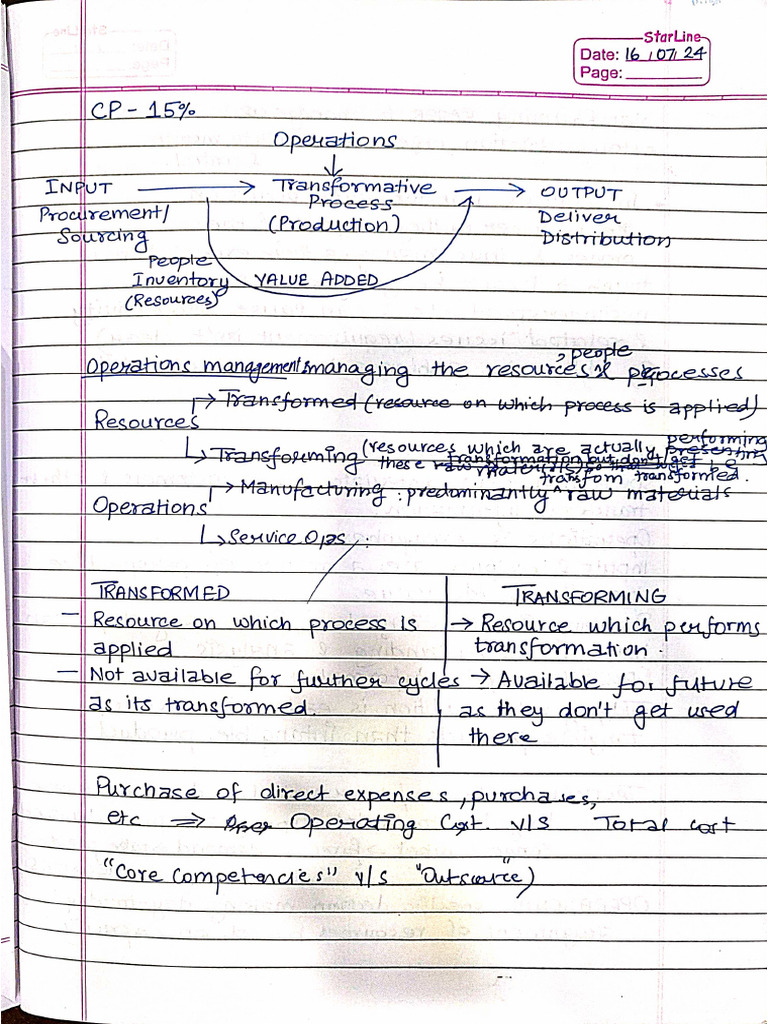 StarLine
Date: 16/07/24
Page:
CP - 15%
Operations
INPUT → Transformative → OUTPUT
Process
Procurement/ (Production) Deliver
Sourcing Distribution
People
Inventory VALUE ADDED
(Resources)
, people
Operations management: managing the resources & processes
Resources → Transformed (resource on which process is applied)
performing
→ Transforming (resources which are actually presenting
these transformation but don't get be
transfom transformed.
Operations → Manufacturing : predominantly raw materials
→ Service Ops :
TRANSFORMED TRANSFORMING
- Resource on which process is → Resource which performs
applied transformation.
- Not available for further cycles → Available for future
as its transformed. as they don't get used
there
Purchase of direct expenses, purchases,
etc ⇒ Operating Cost. v/s Total cost
"Core Competencies" v/s "Outsource")